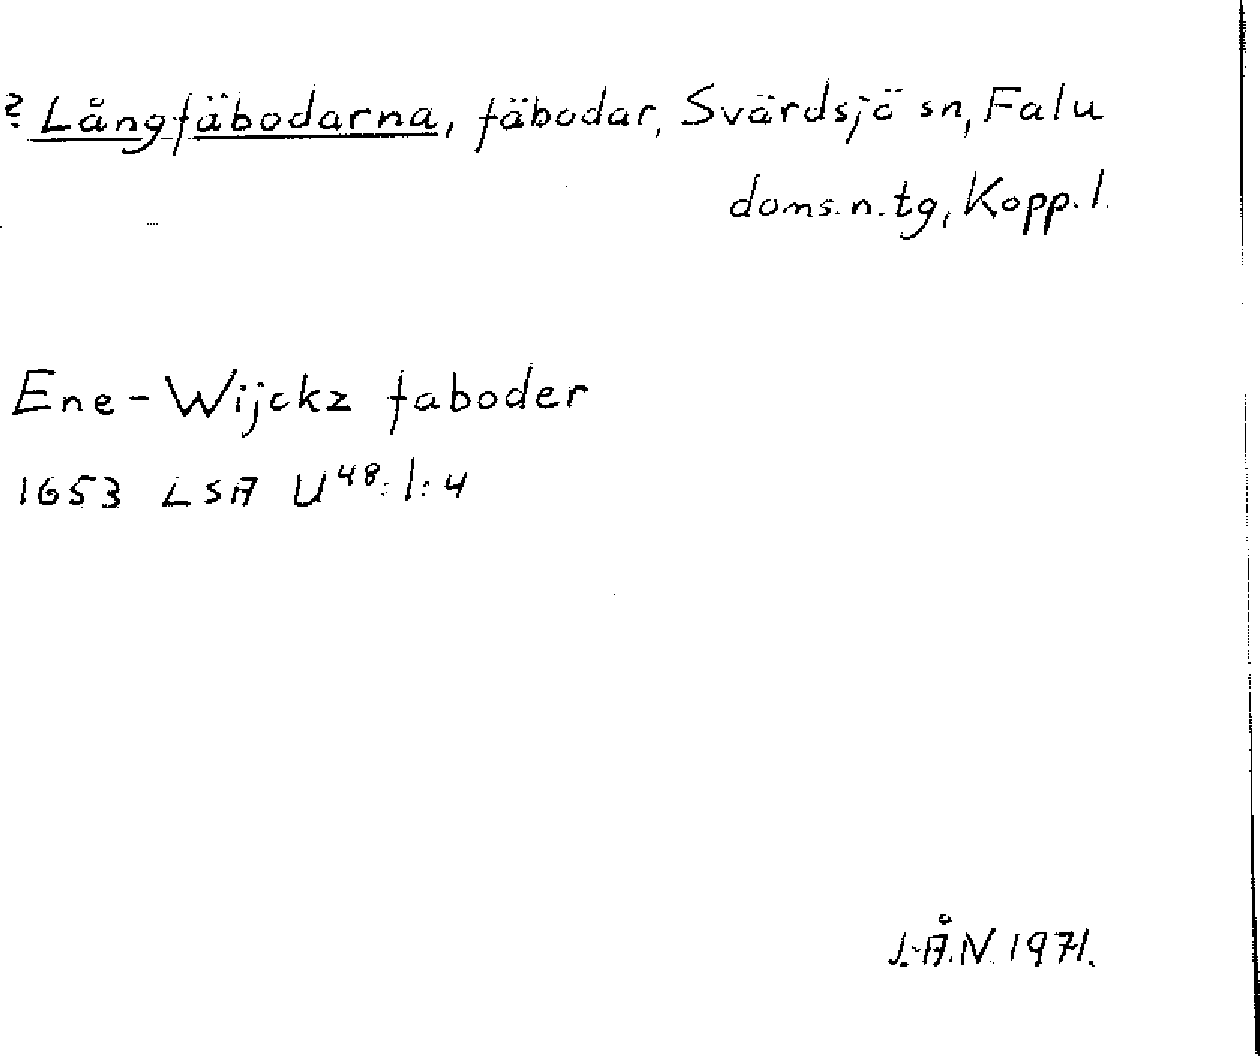 ? Långfäbodarna, fäbodar, Svärdsjö sn, Falu
doms.n.tg, Kopp. l.
Ene-Wijckz faboder
1653 LSA U48:1:4
J.-Å.N. 1971.